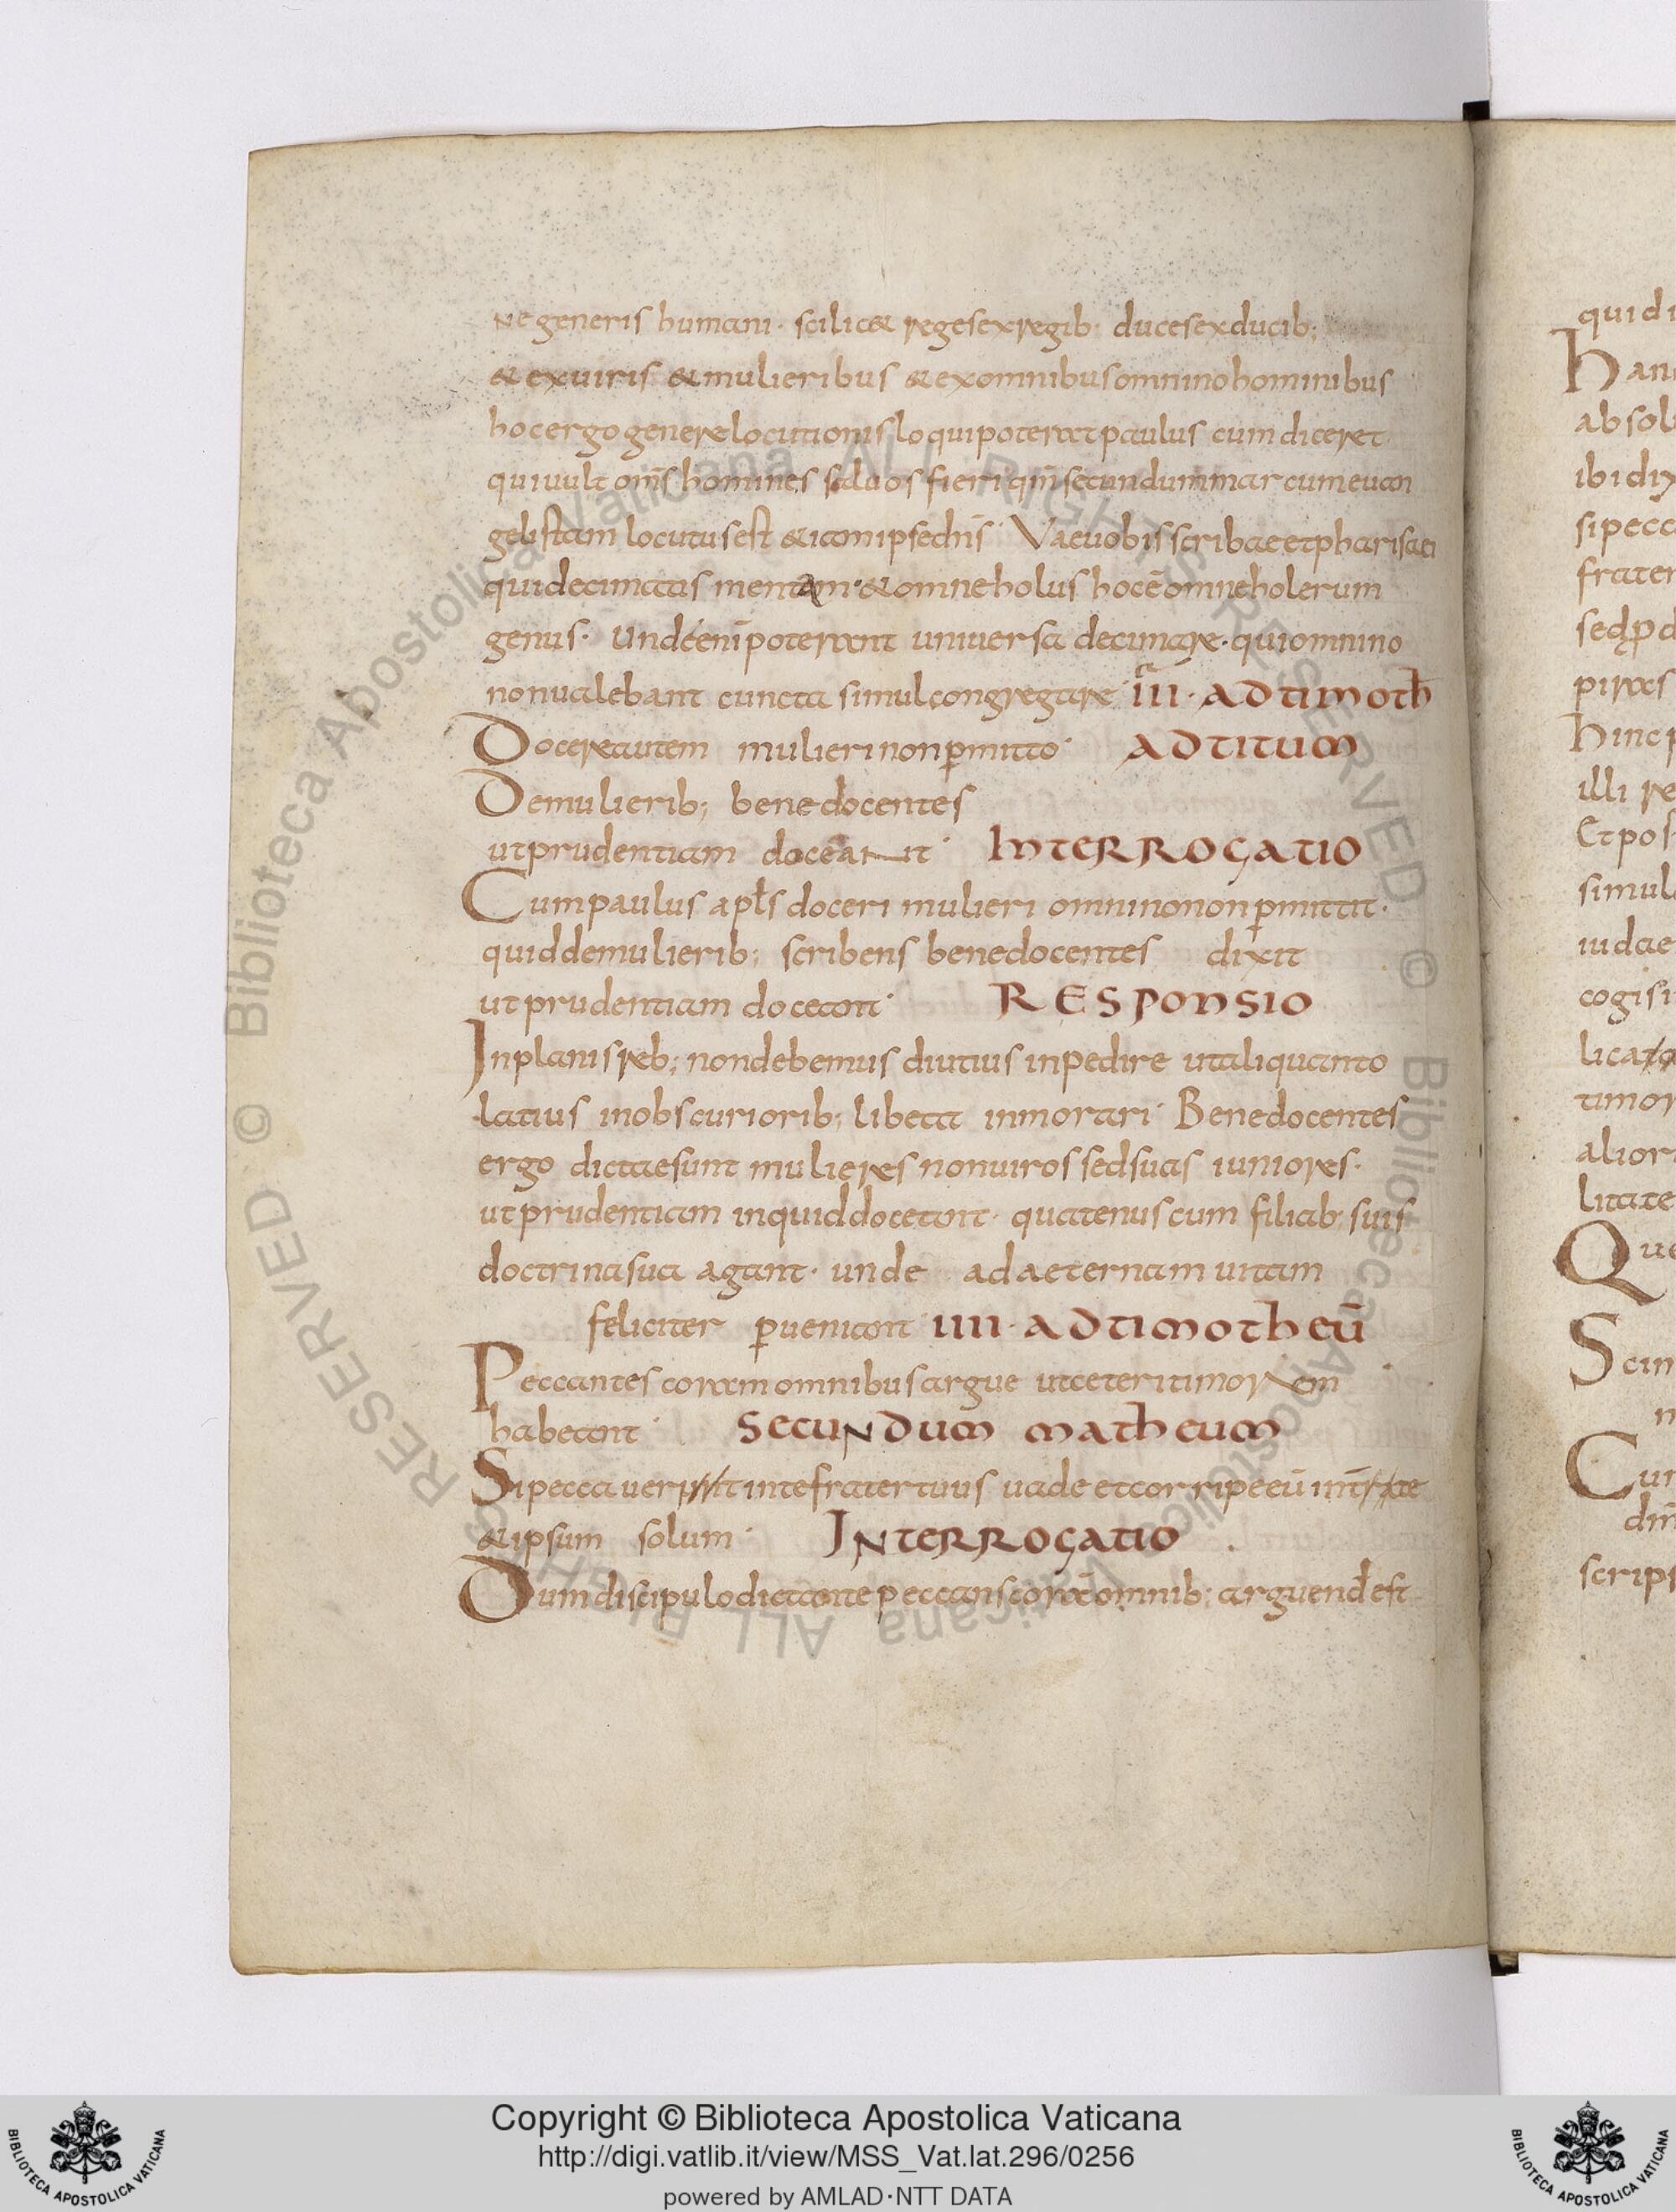 ne generis humani · scilic& reges ex regib: duces ex ducib;
& ex uiris & mulieribus & ex omnibus omnino hominibus
hoc ergo genere locutionis loqui poterat paulus cum diceret
qui uult om̄s homines saluos fieri qm̄ secundum marcum euan
gelistam locutus est & iam ipse dn̄s · Vae uobis scribae et pharisaei
qui decimatis mentam · & omne holus hoc ē omne holerum
genus · unde enī poterant uniuersa decimare · qui omnino
non ualebant cuncta simul congregare · III · AD TIMOTH
Docere autem mulieri non p̄mitto · AD TITUM
De mulierib; bene docentes
ut prudentiam doceant · INTERROGATIO
Cum paulus apl̄s doceri mulieri omnino non p̄mittit ·
quid de mulierib; scribens bene docentes dixit
ut prudentiam doceant · RESPONSIO
In planis reb; non debemus diutius inpedire ut aliquanto
latius in obscuriorib; libeat inmorari · Bene docentes
ergo dictae sunt mulieres non uiros sed suas iuniores ·
ut prudentiam inquid doceant · quatenus cum filiab; suis
doctrina sua agant · unde ad aeternam uitam
feliciter p̄ueniant · IIII · AD TIMOTHEŪ
Peccantes coram omnibus argue ut ceteri timorem
habeant · SECUNDUM MATHEUM
Si peccauerit in te frater tuus uade et corripe eū int̄ te
& ipsum solum · INTERROGATIO
Dum discipulo dictante peccans corā omnib; arguend̄ est
qui di
Han
absol
ibi dix
si pecc
frater
sed p̄ d
piras
Hinc p
illi re
Et pos
simul
iudae
cogi si
lica
timor
alior
litate
Que
Scin
n
Cur
din̄
scrips
© Biblioteca Apostolica Vaticana ALL RIGHTS RESERVED © Biblioteca Apostolica Vaticana ALL RIGHTS RESERVED
BIBLIOTECA APOSTOLICA VATICANA
Copyright © Biblioteca Apostolica Vaticana
http://digi.vatlib.it/view/MSS_Vat.lat.296/0256
powered by AMLAD·NTT DATA
BIBLIOTECA APOSTOLICA VATICANA